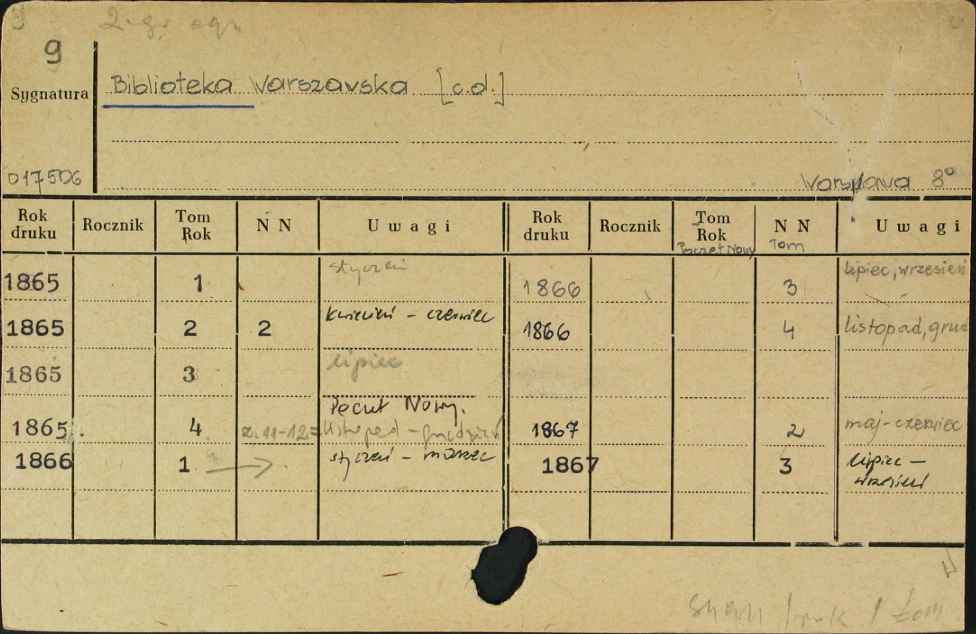 2. g. egz.
9
Sygnatura
Biblioteka Warszawska [c.d.]
017506
Warszawa 8°
Rok druku Rocznik Tom Rok N N Uwagi Rok druku Rocznik Tom Rok Poczet Nowy N N Tom Uwagi
1865 1 styczeń 1866 3 lipiec, wrzesień
1865 2 2 kwiecień - czerwiec 1866 4 listopad, grud
1865 3 lipiec
Poczet Nowy.
1865 4 z. 11-12 listopad - grudzień 1867 2 maj - czerwiec
1866 1 → styczeń - marzec 1867 3 lipiec - wrzesień
1 tom